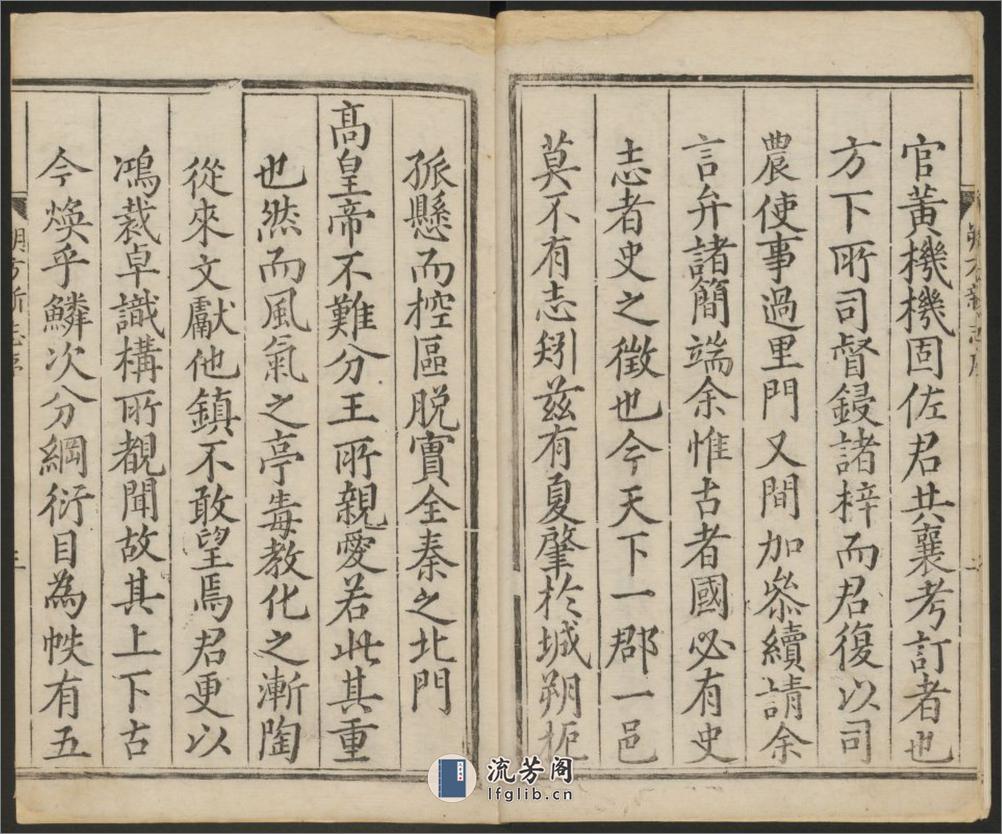 官黃機機固佐君共襄考訂者也
方下所司督鋟諸梓而君復以司
農使事過里門又間加叅續請余
言弁諸簡端余惟古者國必有史
志者史之徵也今天下一郡一邑
莫不有志矧茲有夏肇於城朔扼
孤懸而控區脱實全秦之北門
高皇帝不難分王所親愛若此其重
也然而風氣之亭毒教化之漸陶
從來文獻他鎮不敢望焉君更以
鴻裁卓識構所覩聞故其上下古
今煥乎鱗次分綱衍目為帙有五
朔方新志序
流芳阁
lfglib.cn